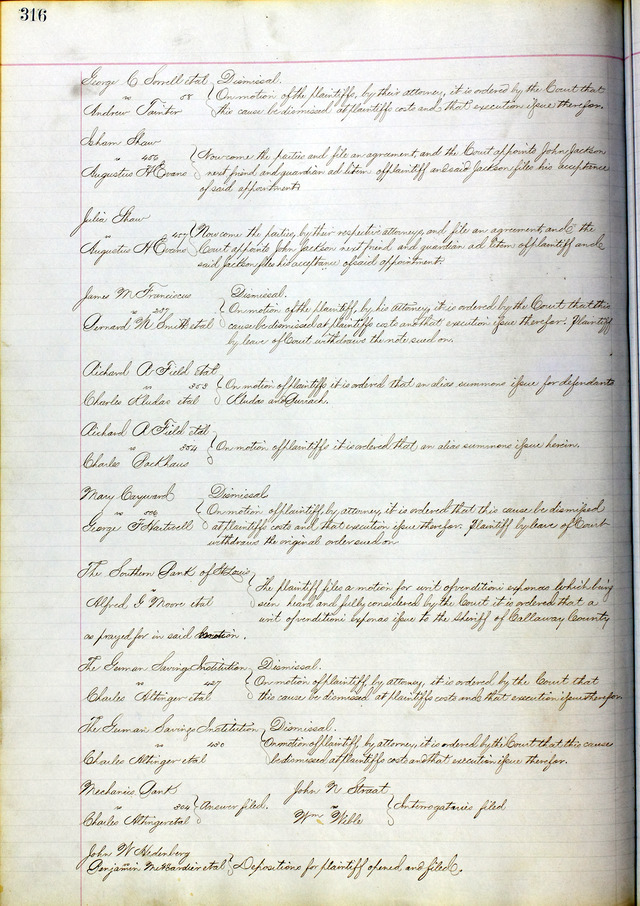 316
George C Sorrell etal Dismissal.
vs 58 On motion of the plaintiffs, by their attorney, it is ordered by the Court that
Andrew Tainter this cause be dismissed at plaintiffs costs and that execution issue therefor.
Isham Shaw
" 456 Now come the parties and file an agreement, and the Court appoints John Jackson
Augustus H Evans next friend and guardian ad litem of plaintiff and said Jackson files his acceptance
of said appointment
Julia Shaw
" 457 Now come the parties, by their respective attorneys, and file an agreement, and the
Augustus H Evans Court appoints John Jackson next friend and guardian ad litem of plaintiff and
said Jackson files his acceptance of said appointment.
James M Franciscus Dismissal.
vs On motion of the plaintiff, by his attorney, it is ordered by the Court that this
Bernard M. Smith etal cause be dismissed at plaintiffs costs and that execution issue therefor. Plaintiff
by leave of Court withdraws the note sued on.
Richard A Field etal
vs 353 On motion of plaintiffs it is ordered that an alias summons issue for defendants
Charles Kludas etal Kludas and
Richard A Field etal
vs 354 On motion of plaintiffs it is ordered that an alias summons issue herein.
Charles Backhaus
Mary Cayward Dismissal
vs On motion of plaintiff, by attorney, it is ordered that this cause be dismissed
George F Hartwell at plaintiffs costs and that execution issue therefor. Plaintiff by leave of Court
withdraws the original order sued on
The Southern Bank of St Louis
vs The plaintiff files a motion for writ of venditioni exponas which being
Alfred G Moore etal seen heard and fully considered by the Court it is ordered that a
writ of venditioni exponas issue to the sheriff of Callaway County
as prayed for in said motion.
The German Savings Institution Dismissal.
vs 427 On motion of plaintiff by attorney, it is ordered by the Court that
Charles Altinger etal this cause be dismissed at plaintiffs costs and that execution issue therefor
The German Savings Institution Dismissal.
vs 430 On motion of plaintiff by attorney, it is ordered by the Court that this cause
Charles Altinger etal be dismissed at plaintiffs costs and that execution issue therefor.
Mechanics Bank John N Straat
vs 384 Answer filed. vs Interrogatories filed
Charles Altinger etal Wm Wible
John W Hedenberg
Benjamin McKardier etal Depositions for plaintiff opened and filed.